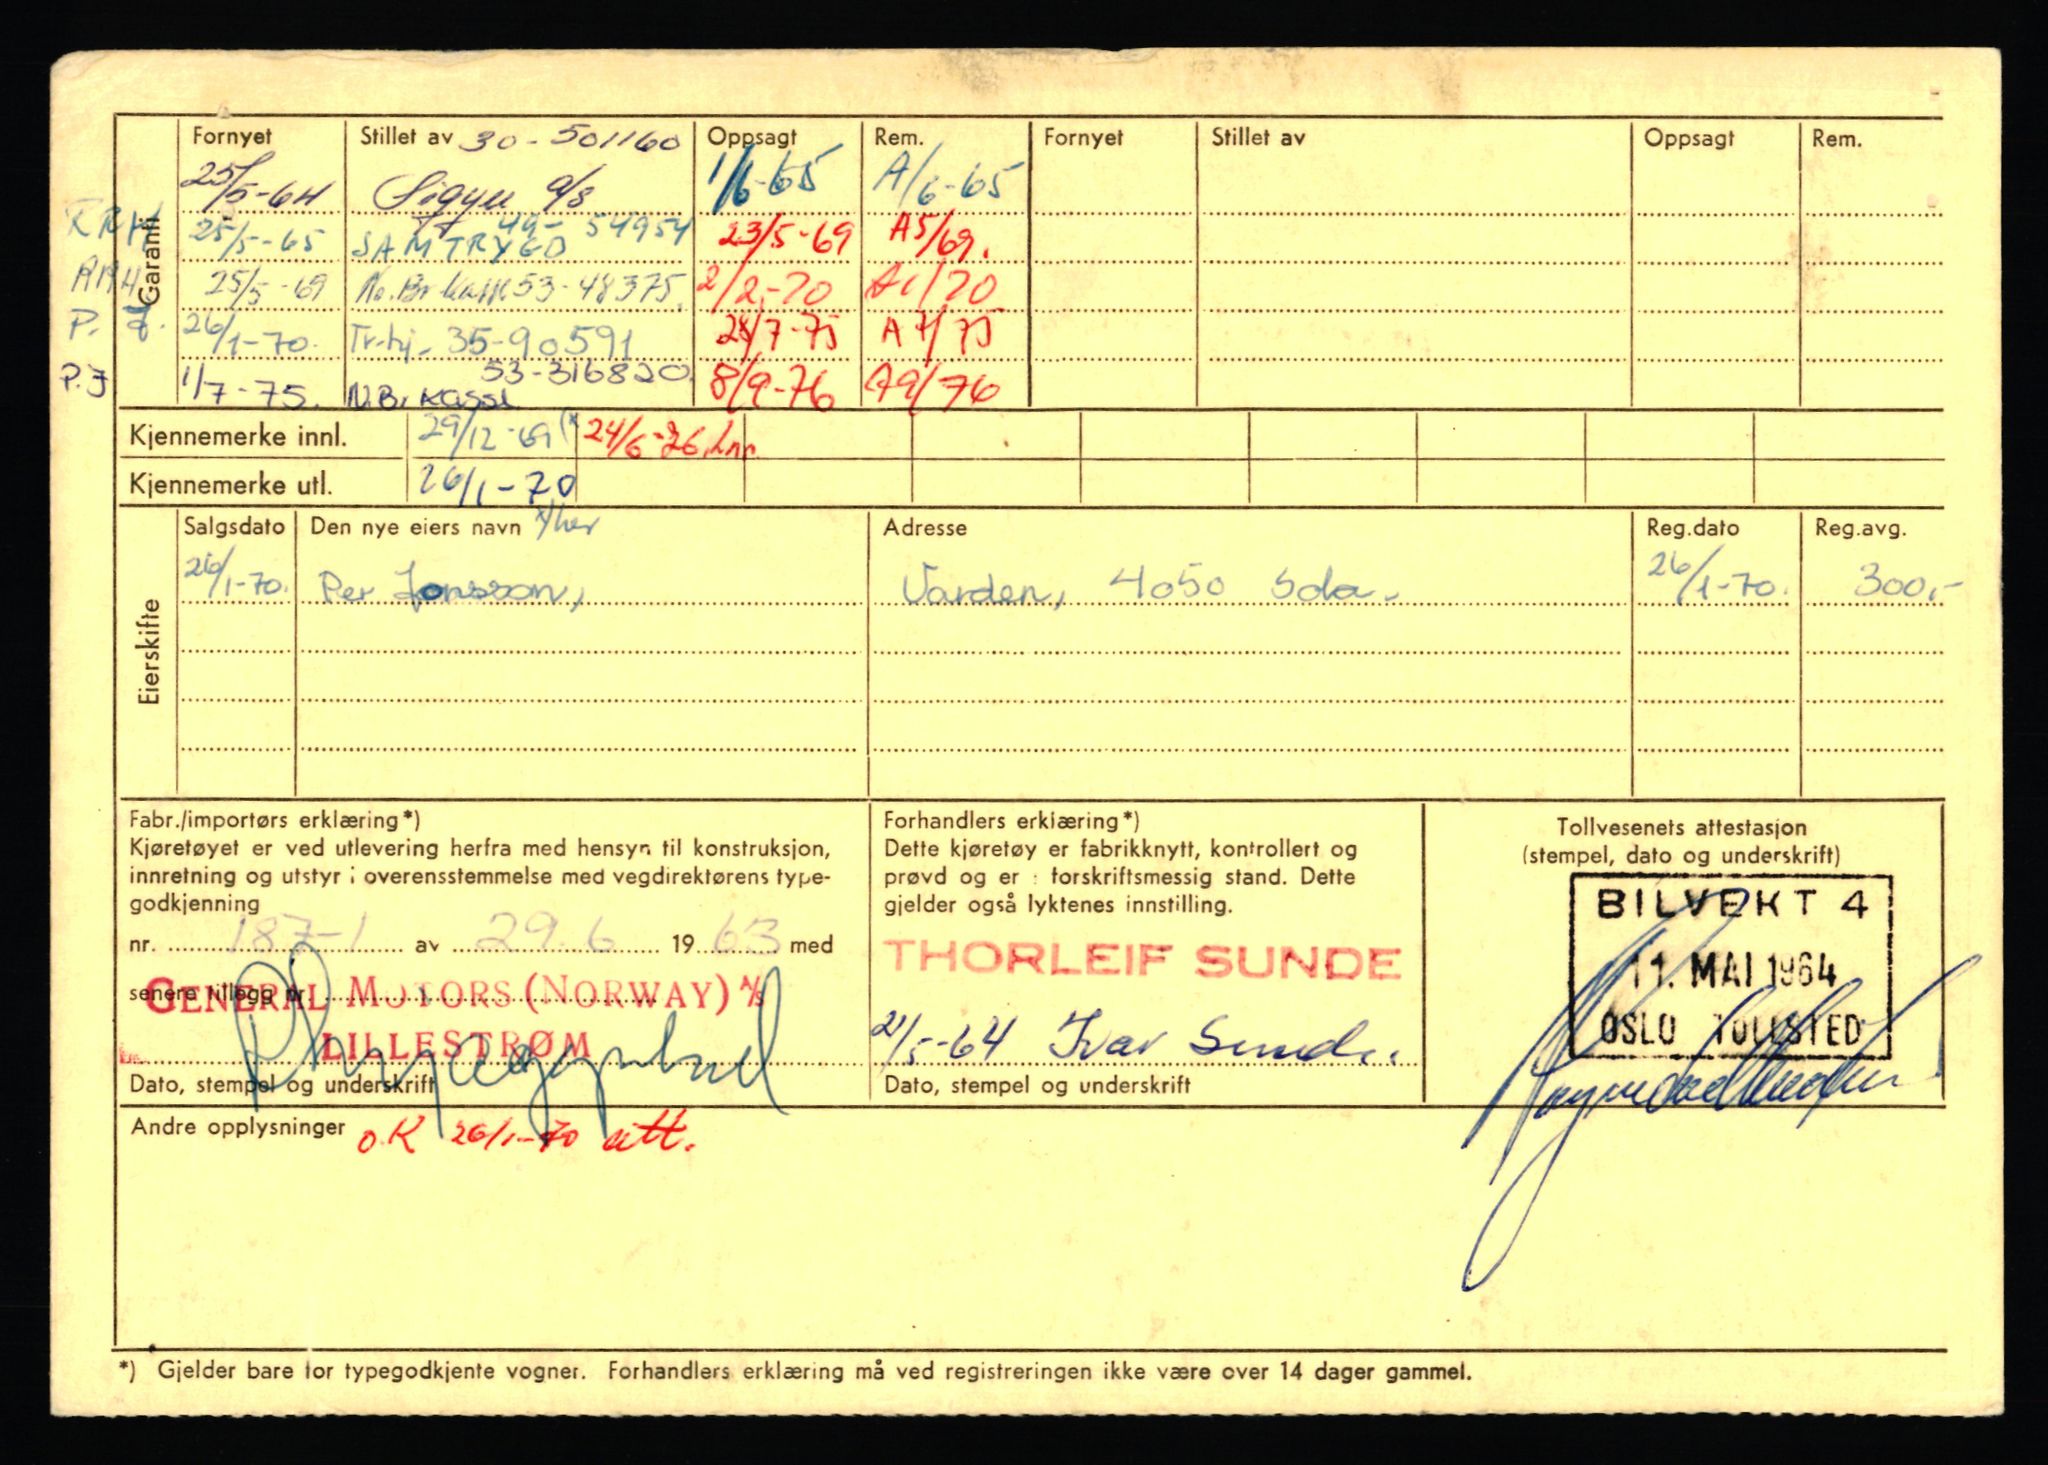 Fornyet Stillet av 30-501160 Oppsagt Rem. Fornyet Stillet av Oppsagt Rem.
Garanti
25/5-64 Sigyn a/s 1/6-65 A/6-65
49-54954
KRH 25/5-65 SAMTRYGD 23/5-69 A5/69.
AMH 25/5-69 No.Br.kasse 53-48375. 2/2-70 A1/70
P. J. 26/1-70. Tr.hj. 35-90591 28/7-75 A7/75
53-316820.
P.J 1/7-75. N.Br.kasse 8/9-76 A9/76
Kjennemerke innl. 29/12-69 (* 24/6-76.
Kjennemerke utl. 26/1-70
Eierskifte
Salgsdato Den nye eiers navn Adresse Reg.dato Reg.avg.
26/1-70. Per Jonsson, Varden, 4050 Sola. 26/1-70. 300,-
Fabr./importørs erklæring*)
Kjøretøyet er ved utlevering herfra med hensyn til konstruksjon,
innretning og utstyr i overensstemmelse med vegdirektørens type-
godkjenning
nr. 187-1 av 29.6 1963 med
senere tillegg nr.
GENERAL MOTORS (NORWAY) A/S
LILLESTRØM
Dato, stempel og underskrift
Forhandlers erklæring*)
Dette kjøretøy er fabrikknytt, kontrollert og
prøvd og er i forskriftsmessig stand. Dette
gjelder også lyktenes innstilling.
THORLEIF SUNDE
21/5-64 Ivar Sunde
Dato, stempel og underskrift
Tollvesenets attestasjon
(stempel, dato og underskrift)
BILVEKT 4
11. MAI 1964
OSLO TOLLSTED
Andre opplysninger O.K 26/1-70
*) Gjelder bare for typegodkjente vogner. Forhandlers erklæring må ved registreringen ikke være over 14 dager gammel.